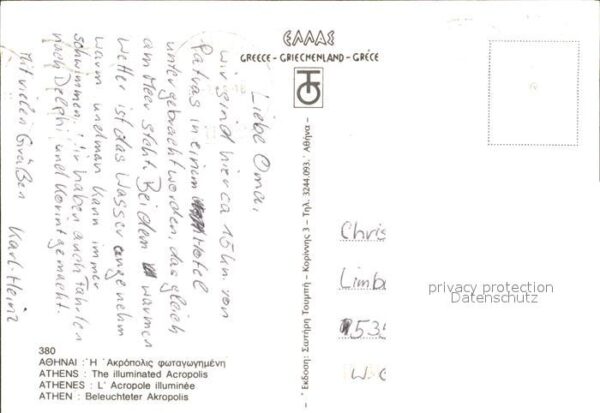 ΕΛΛΑΣ
GREECE - GRIECHENLAND - GRÈCE
Liebe Oma,
wir sind hier ca 15 km von
Patras in einem Hotel
untergebracht worden, das gleich
am Meer steht. Bei dem warmen
Wetter ist das Wasser angenehm
warm und man kann immer
schwimmen. Wir haben auch Fahrten
nach Delphi und Korint gemacht.
Mit vielen Grüßen
Karl-Heinz
Ἔκδοση: Σωτήρη Τουμπή - Κορίννης 3 - Τηλ. 3244.093. Ἀθήνα -
Chris
Limb
535
W. G
privacy protection
Datenschutz
380
ΑΘΗΝΑΙ : Ἡ Ἀκρόπολις φωταγωγημένη
ATHENS : The illuminated Acropolis
ATHENES : L' Acropole illuminée
ATHEN : Beleuchteter Akropolis